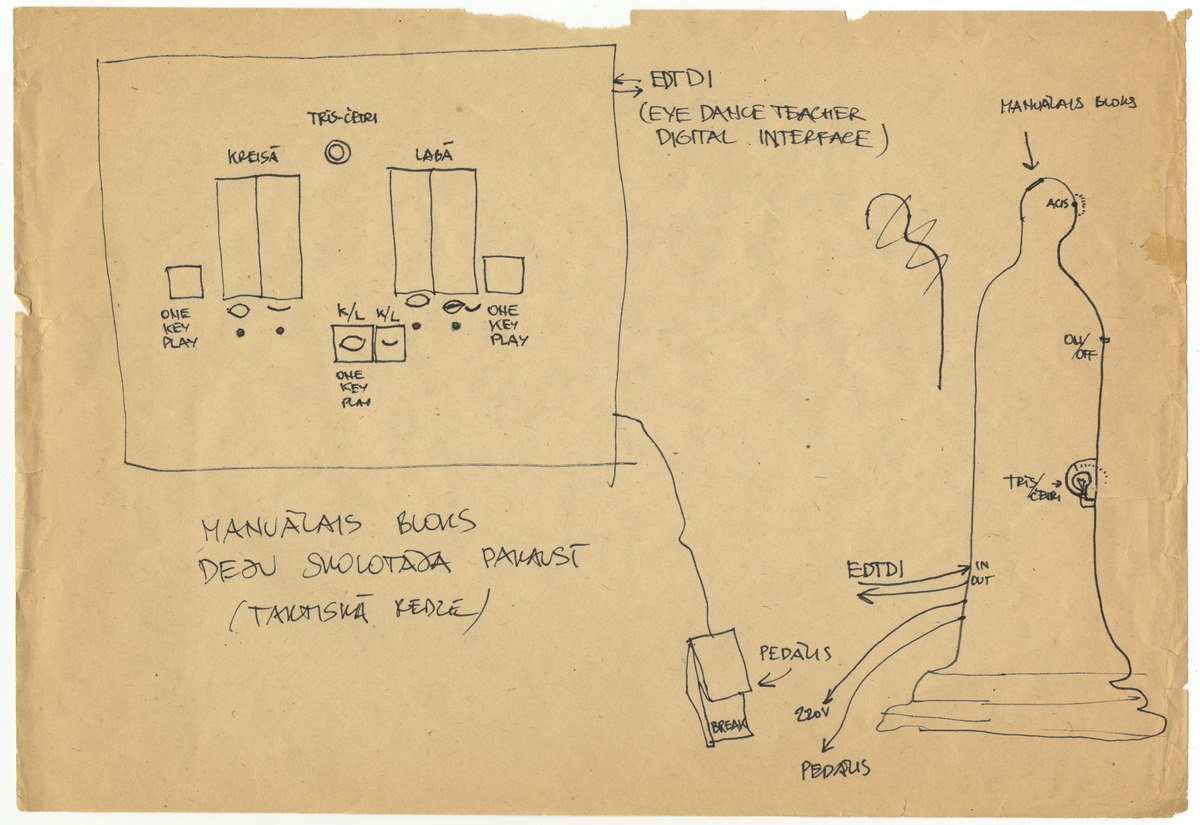 EDTDI
(EYE DANCE TEACHER
DIGITAL INTERFACE)
TRĪS-ČETRI
KREISĀ
LABĀ
ONE
KEY
PLAY
K/L K/L
ONE
KEY
PLAY
ONE
KEY
PLAY
MANUĀLAIS BLOKS
DEJU SKOLOTĀJA PAKAUSĪ
PEDĀLIS
BREAK
MANUĀLAIS BLOKS
ACIS
ON/
OFF
TRĪS/
ČETRI
EDTDI
IN
OUT
220V
PEDĀLIS